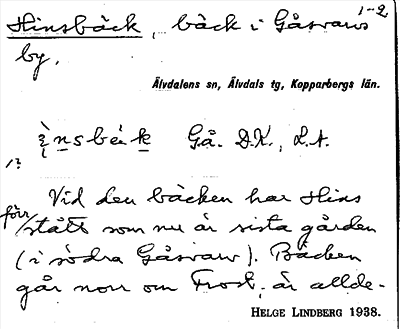 1-2
Hinsbäck, bäck i Gåsvarvs
by.
Älvdalens sn, Älvdals tg, Kopparbergs län.
Gå. D.K., L.A.
1?
Vid den bäcken har Hins
förr
stått som nu är sista gården
(i södra Gåsvarv). Bäcken
går norr om Frost, är allde-
HELGE LINDBERG 1938.